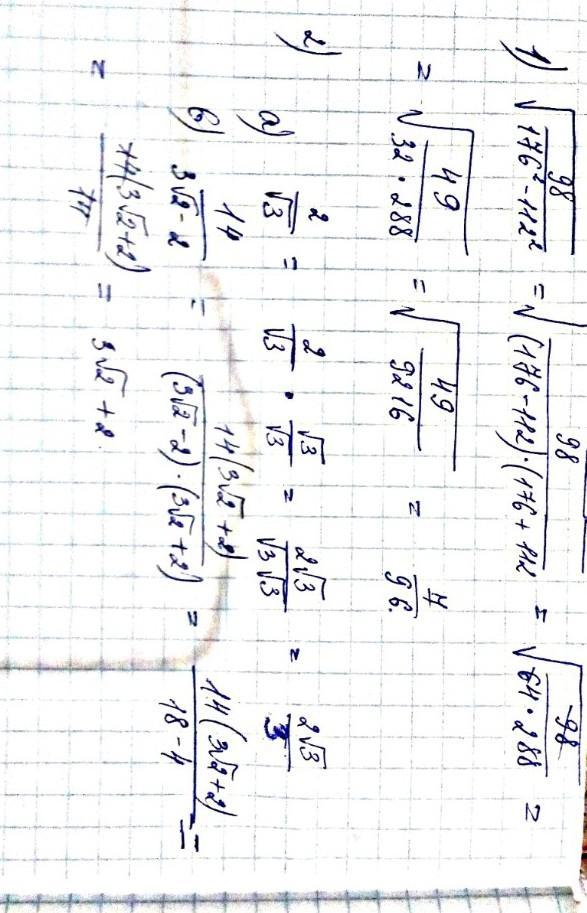 1) √(98/(176² - 112²)) = √(98/((176 - 112)·(176 + 112)) = √(98/(64·288)) =
= √(49/(32·288)) = √(49/9216) = 7/96.
2)
а) 2/√3 = 2/√3 · √3/√3 = 2√3/(√3√3) = 2√3/3
б) 14/(3√2 - 2) = 14(3√2 + 2)/((3√2 - 2)·(3√2 + 2)) = 14(3√2 + 2)/(18 - 4) =
= 14(3√2 + 2)/14 = 3√2 + 2.